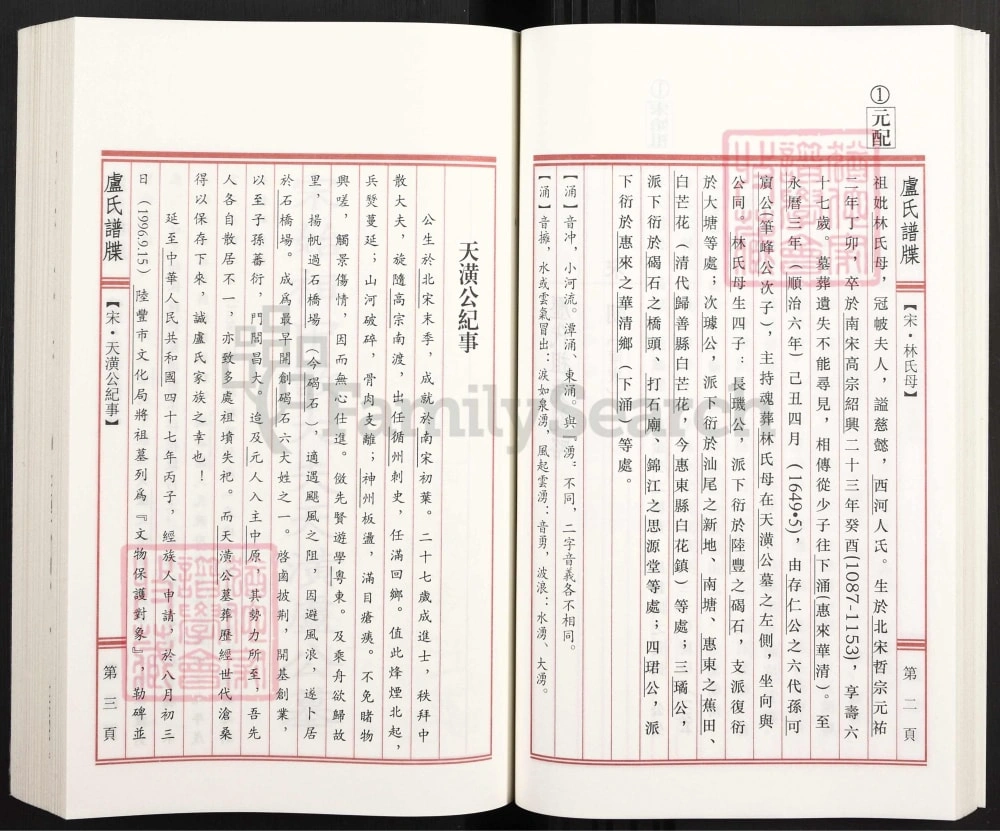 ①元配
盧氏譜牒
【宋・林氏母】
第二頁
祖妣林氏母，冠帔夫人，謚慈懿，西河人氏。生於北宋哲宗元祐
二年丁卯，卒於南宋高宗紹興二十三年癸酉(1087-1153)，享壽六
十七歲，墓葬遺失不能尋見，相傳從少子往下涌(惠來華清)。至
永曆三年，（順治六年）己丑四月（1649•5)，由存仁公之六代孫可
賔公(筆峰公次子)，主持魂葬林氏母在天潢公墓之左側，坐向與
公同。林氏母生四子：長璣公，派下衍於陸豐之碣石，支派復衍
於大塘等處；次璩公，派下衍於汕尾之新地、南塘、惠東之蕉田、
白芒花（清代歸善縣白芒花，今惠東縣白花鎮）等處；三璚公，
派下衍於碣石之橋頭、打石廟、錦江之思源堂等處；四珺公，派
下衍於惠來之華清鄉（下涌）等處。
【涌】音冲，小河流。潭涌、東涌。與『湧』不同，二字音義各不相同。
【湧】音擁，水或雲氣冒出：淚如泉湧，風起雲湧；音勇，波浪：水湧、大湧。
天潢公紀事
公生於北宋末季，成就於南宋初葉。二十七歲成進士，秩拜中
散大夫，旋隨高宗南渡，出任循州刺史，任滿回鄉。值此烽煙北起，
兵燹蔓延；山河破碎，骨肉支離；神州板盪，滿目瘡痍。不免睹物
興嗟，觸景傷情，因而無心仕進。倣先賢遊學粵東。及乘舟欲歸故
里，揚帆過石橋場（今碣石），適遇颶風之阻，因避風浪，遂卜居
於石橋場。成爲最早開創碣石六大姓之一。啓鹵披荆，開基創業，
以至子孫蕃衍，門閭昌大。迨及元人入主中原，其勢力所至，吾先
人各自散居不一，亦致多處祖墳失祀。而天潢公墓葬歷經世代滄桑
得以保存下來，誠盧氏家族之幸也！
延至中華人民共和國四十七年丙子，經族人申請，於八月初三
日（1996.9.15）陸豐市文化局將祖墓列爲『文物保護對象』，勒碑並
盧氏譜牒
【宋・天潢公紀事】
第三頁
FamilySearch